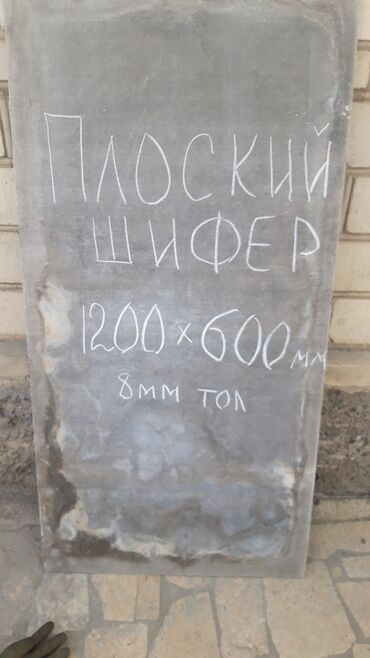 ПЛОСКИЙ
ШИФЕР
1200×600мм
8мм тол